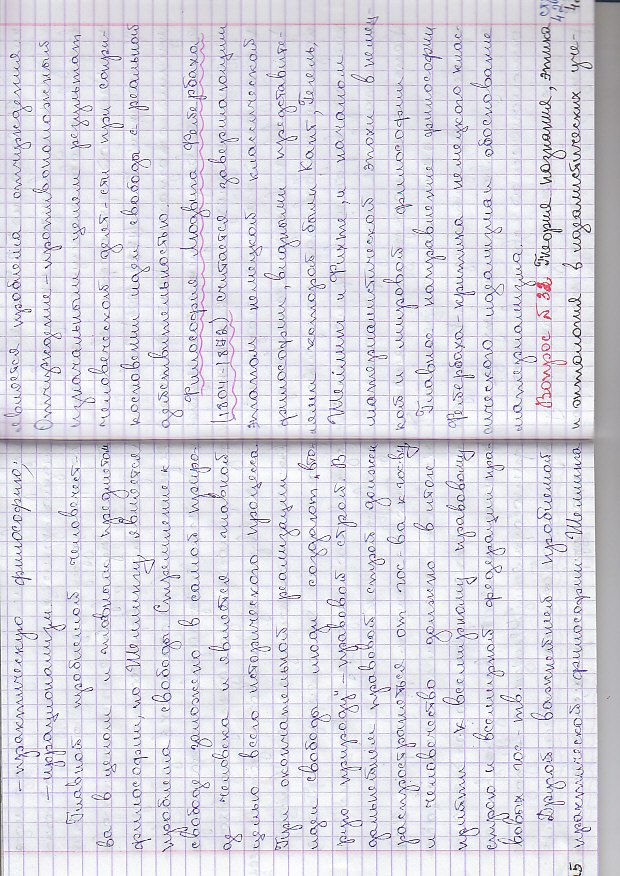 - практическую философию;
- иррационализм.
Главной проблемой человечест-
ва в целом и главным предметом
философии, по Шеллингу, является
проблема свободы. Стремление к
свободе заложено в самой приро-
де человека и является главной
целью всего исторического процесса.
При окончательной реализации
идеи свободы люди создают „вто-
рую природу" - правовой строй. В
дальнейшем правовой строй должен
распространяться от гос-ва к гос-ву
и человечество должно в итоге
прийти к всемирному правовому
строю и всемирной федерации пра-
вовых гос-тв.
Другой важнейшей проблемой
практической философии Шеллинга
является проблема отчуждения.
Отчуждение - противоположный
изначальным целям результат
человеческой деят-сти при сопри-
косновении идеи свободы с реальной
действительностью.
Философия Людвига Фейербаха
(1804-1872) считается завершающим
этапом немецкой классической
философии, видными представите-
лями которой были Кант, Гегель,
Шеллинг и Фихте, и началом
материалистической эпохи в немец-
кой и мировой философии.
Главное направление философии
Фейербаха - критика немецкого клас-
сического идеализма и обоснование
материализма.
Вопрос №32 Теория познания, этика
и онтология в идеалистических уче-